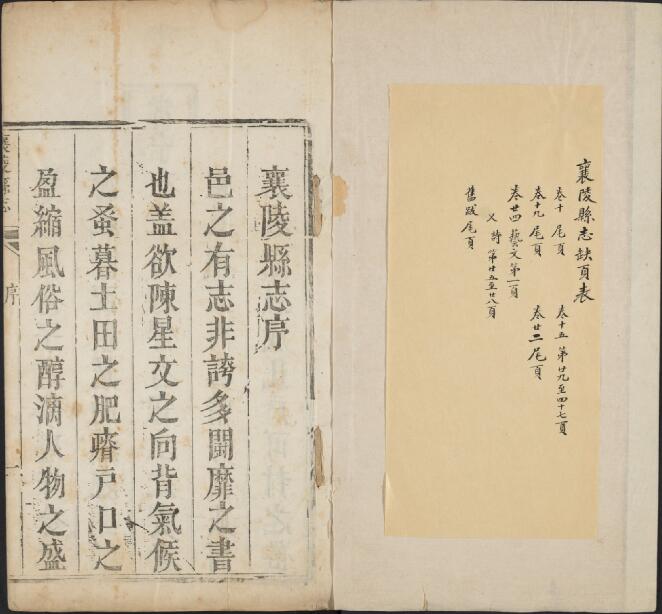 襄陵縣志缺頁表
卷十 尾頁 卷十五 第廿九至四十七頁
卷十九 尾頁 卷廿二 尾頁
卷廿四 藝文第一頁
又 詩 第廿五至廿八頁
舊跋尾頁
襄陵縣志序
邑之有志非誇多鬬靡之書
也蓋欲陳星文之向背氣候
之蚤暮土田之肥瘠戶口之
盈縮風俗之醇漓人物之盛
襄陵縣志
序
一